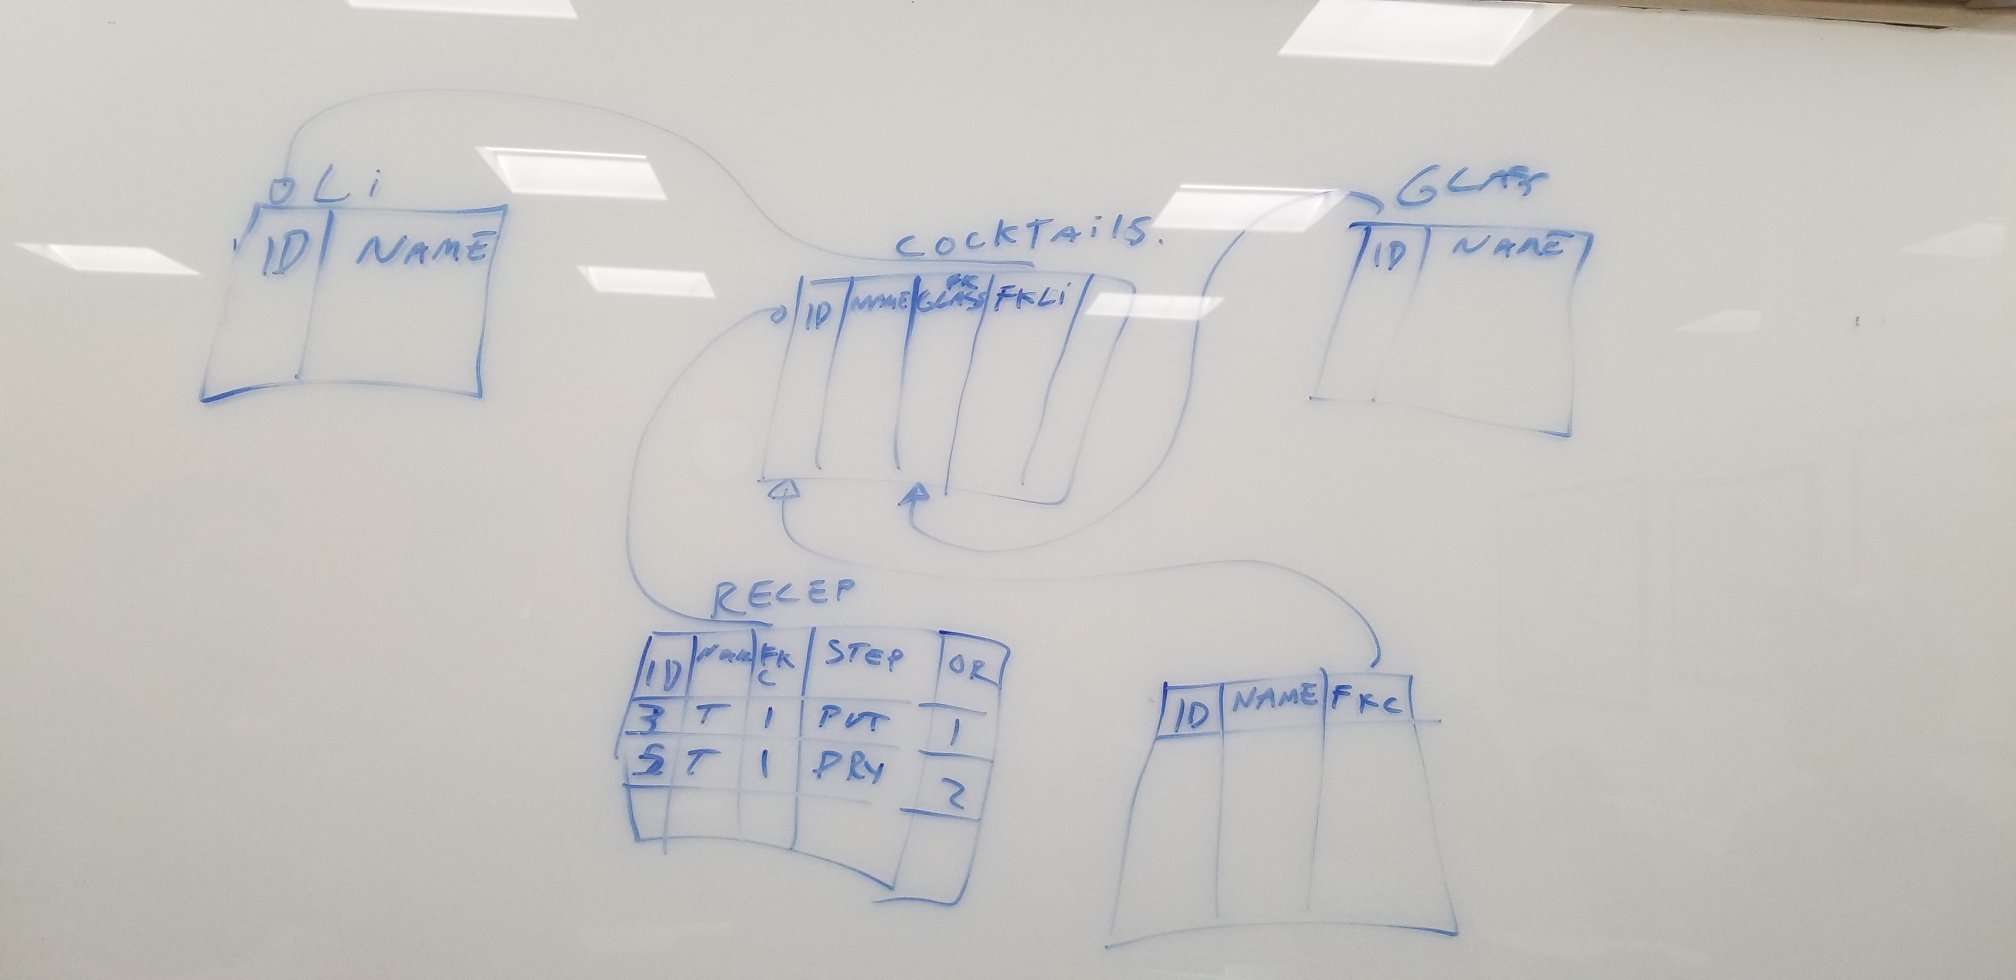 Li
ID NAME
COCKTAilS.
ID NAME GLASS FK FKLi
GLASS
ID NAME
RECEP
ID NAM FK C STEP OR
3 T 1 PUT 1
5 T 1 DRY 2
ID NAME FKC